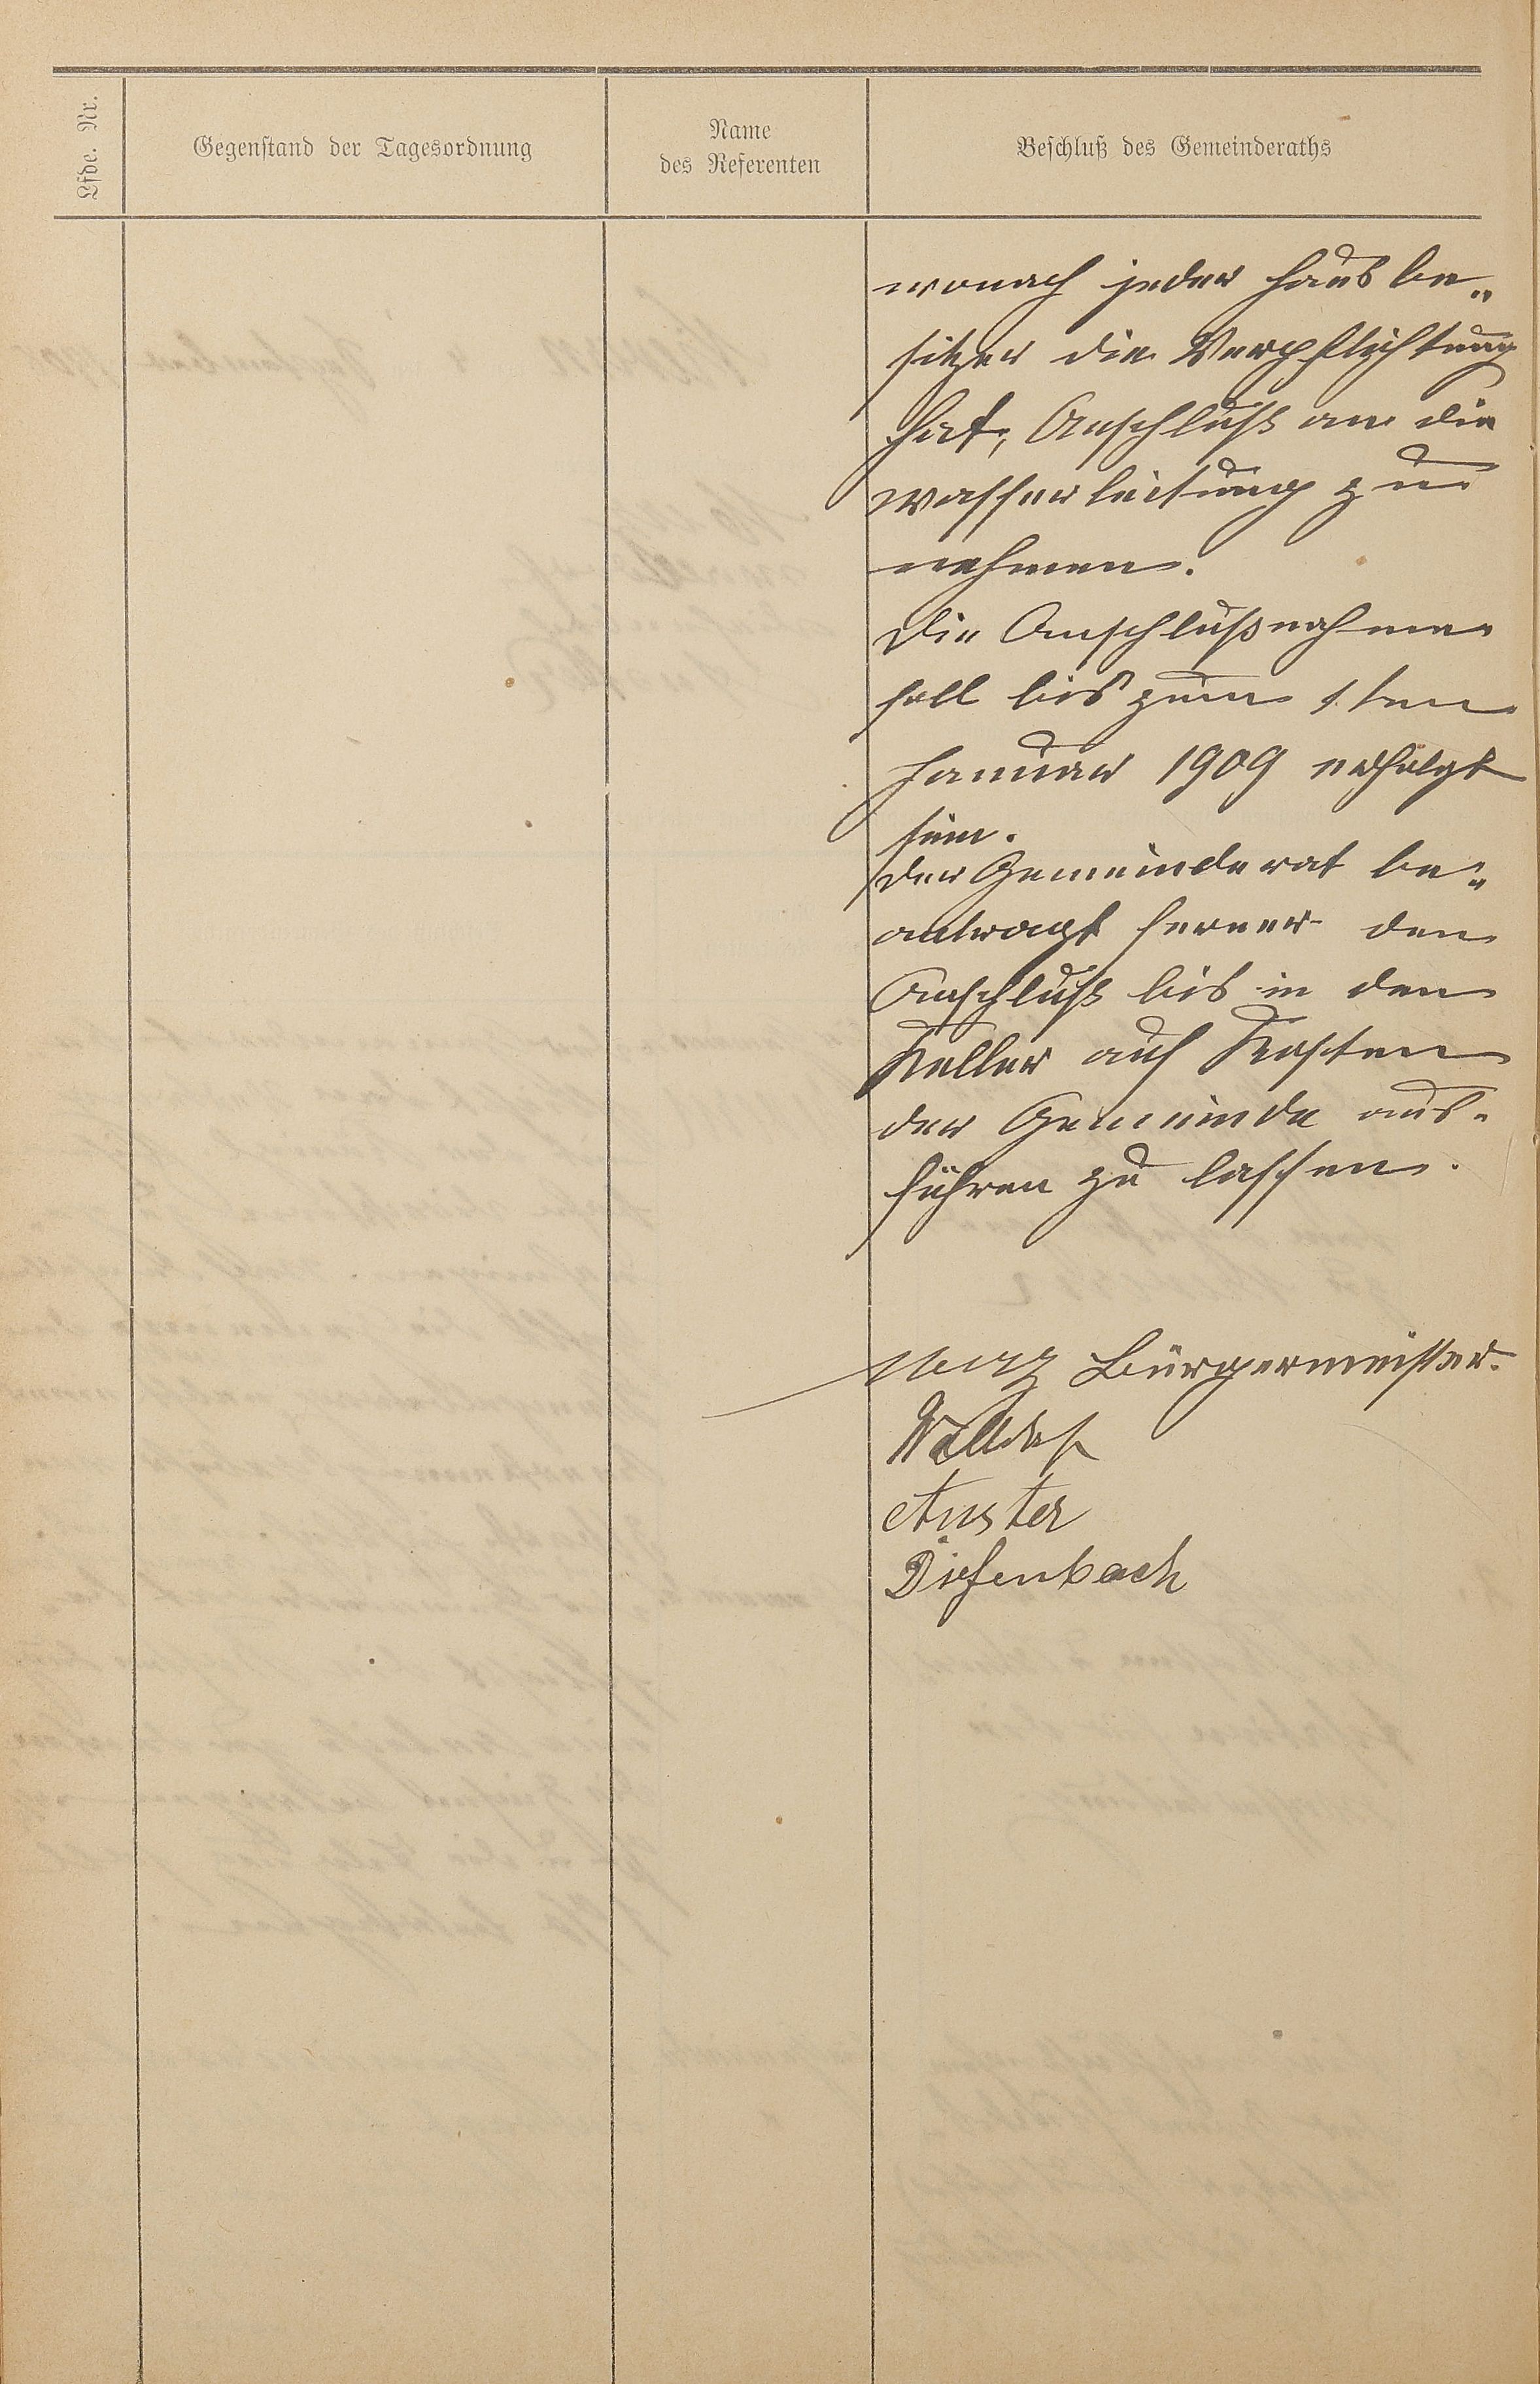 Lfde. Nr.
Gegenstand der Tagesordnung
Name
des Referenten
Beschluß des Gemeinderaths
wonach jeder Hausbe„
sitzer die Verpflichtung
hat, Anschluß an die
Wasserleitung zu
nehmen.
Die Anschlußnahme
soll bis zum 1ten
Januar 1909 erfolgt
sein.
Der Gemeinderat be„
antragt ferner den
Anschluß bis in den
Keller auf Kosten
der Gemeinde aus„
führen zu lassen.
Merz Bürgermeister.
Anster
Diefenbach